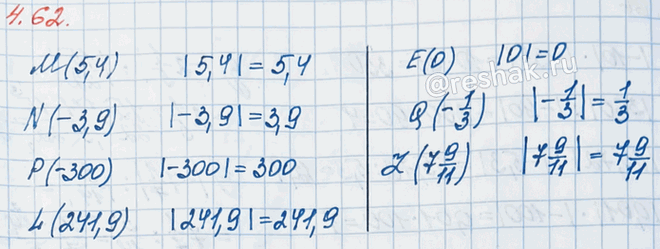 4.62.
M(5,4) |5,4| = 5,4
N(-3,9) |-3,9| = 3,9
P(-300) |-300| = 300
L(241,9) |241,9| = 241,9
E(0) |0| = 0
@reshak.ru
Q(-1/3) |-1/3| = 1/3
Z(7 9/11) |7 9/11| = 7 9/11